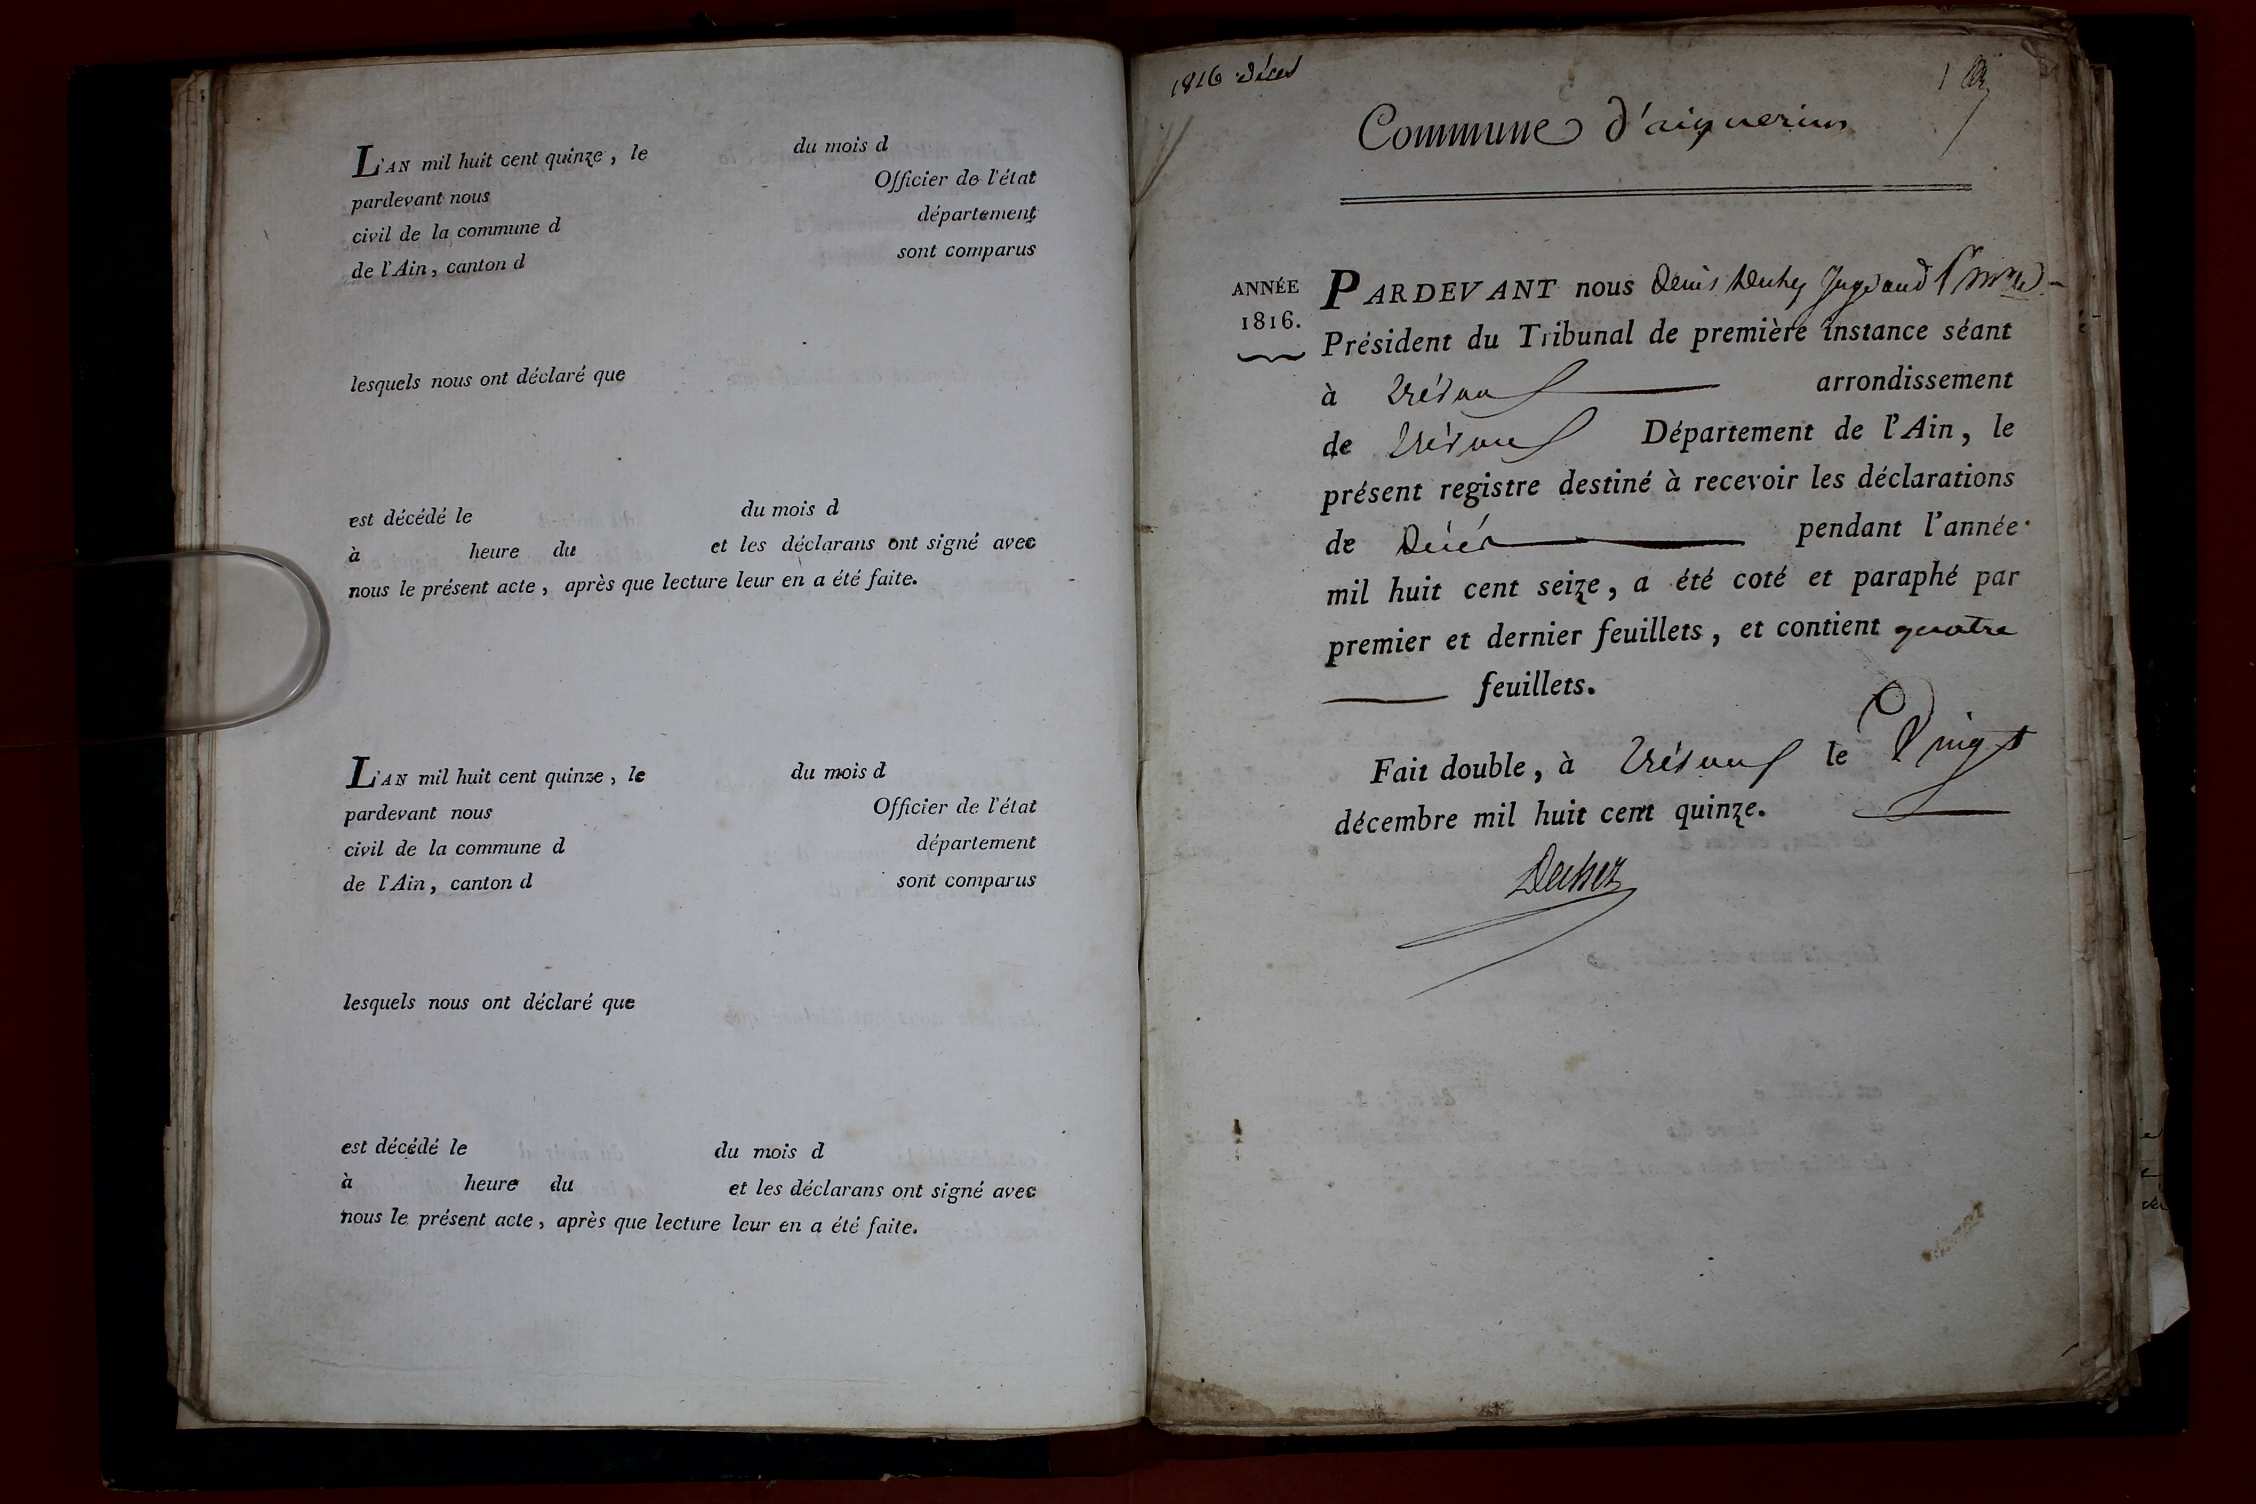 L'AN mil huit cent quinze, le du mois d
pardevant nous Officier de l'état
civil de la commune d département
de l'Ain, canton d sont comparus
lesquels nous ont déclaré que
est décédé le du mois d
à heure du et les déclarans ont signé avec
nous le présent acte, après que lecture leur en a été faite.
L'AN mil huit cent quinze, le du mois d
pardevant nous Officier de l'état
civil de la commune d département
de l'Ain, canton d sont comparus
lesquels nous ont déclaré que
est décédé le du mois d
à heure du et les déclarans ont signé avec
nous le présent acte, après que lecture leur en a été faite.
1816 Décès
1
Commune d'aiguerins
ANNÉE
1816.
PARDEVANT nous Denis
Président du Tribunal de première instance séant
à Trévoux arrondissement
de Trévoux Département de l'Ain, le
présent registre destiné à recevoir les déclarations
de Décès pendant l'année
mil huit cent seize, a été coté et paraphé par
premier et dernier feuillets, et contient quatre
feuillets.
Fait double, à Trévoux le Vingt
décembre mil huit cent quinze.